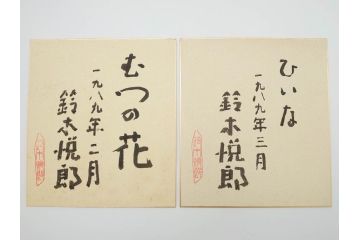 むつの花
一九八九年二月
鈴木悦郎
ひいな
一九八九年三月
鈴木悦郎